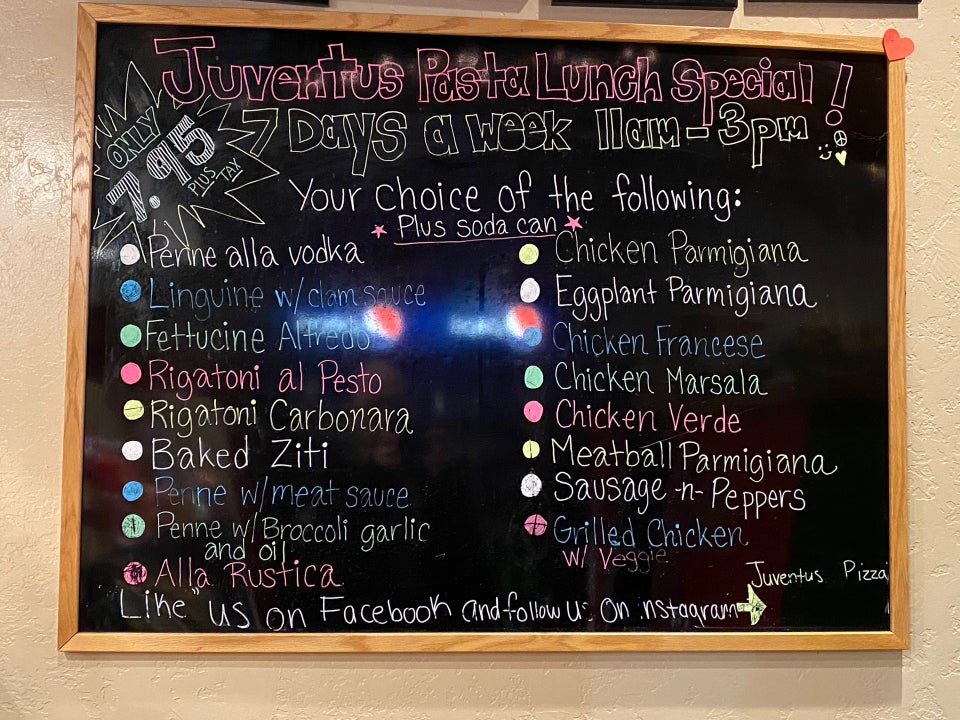 Juventus Pasta Lunch Special!
7 Days a week 11am-3pm
ONLY
7.95
PLUS TAX
Your choice of the following:
Plus soda can
Penne alla vodka
Linguine w/clam sauce
Fettucine Alfredo
Rigatoni al Pesto
Rigatoni Carbonara
Baked Ziti
Penne w/meat sauce
Penne w/Broccoli garlic
and oil
Alla Rustica
Chicken Parmigiana
Eggplant Parmigiana
Chicken Francese
Chicken Marsala
Chicken Verde
Meatball Parmigiana
Sausage -n- Peppers
Grilled Chicken
w/ Veggie
Like" us on Facebook and follow us on instagram
Juventus Pizza